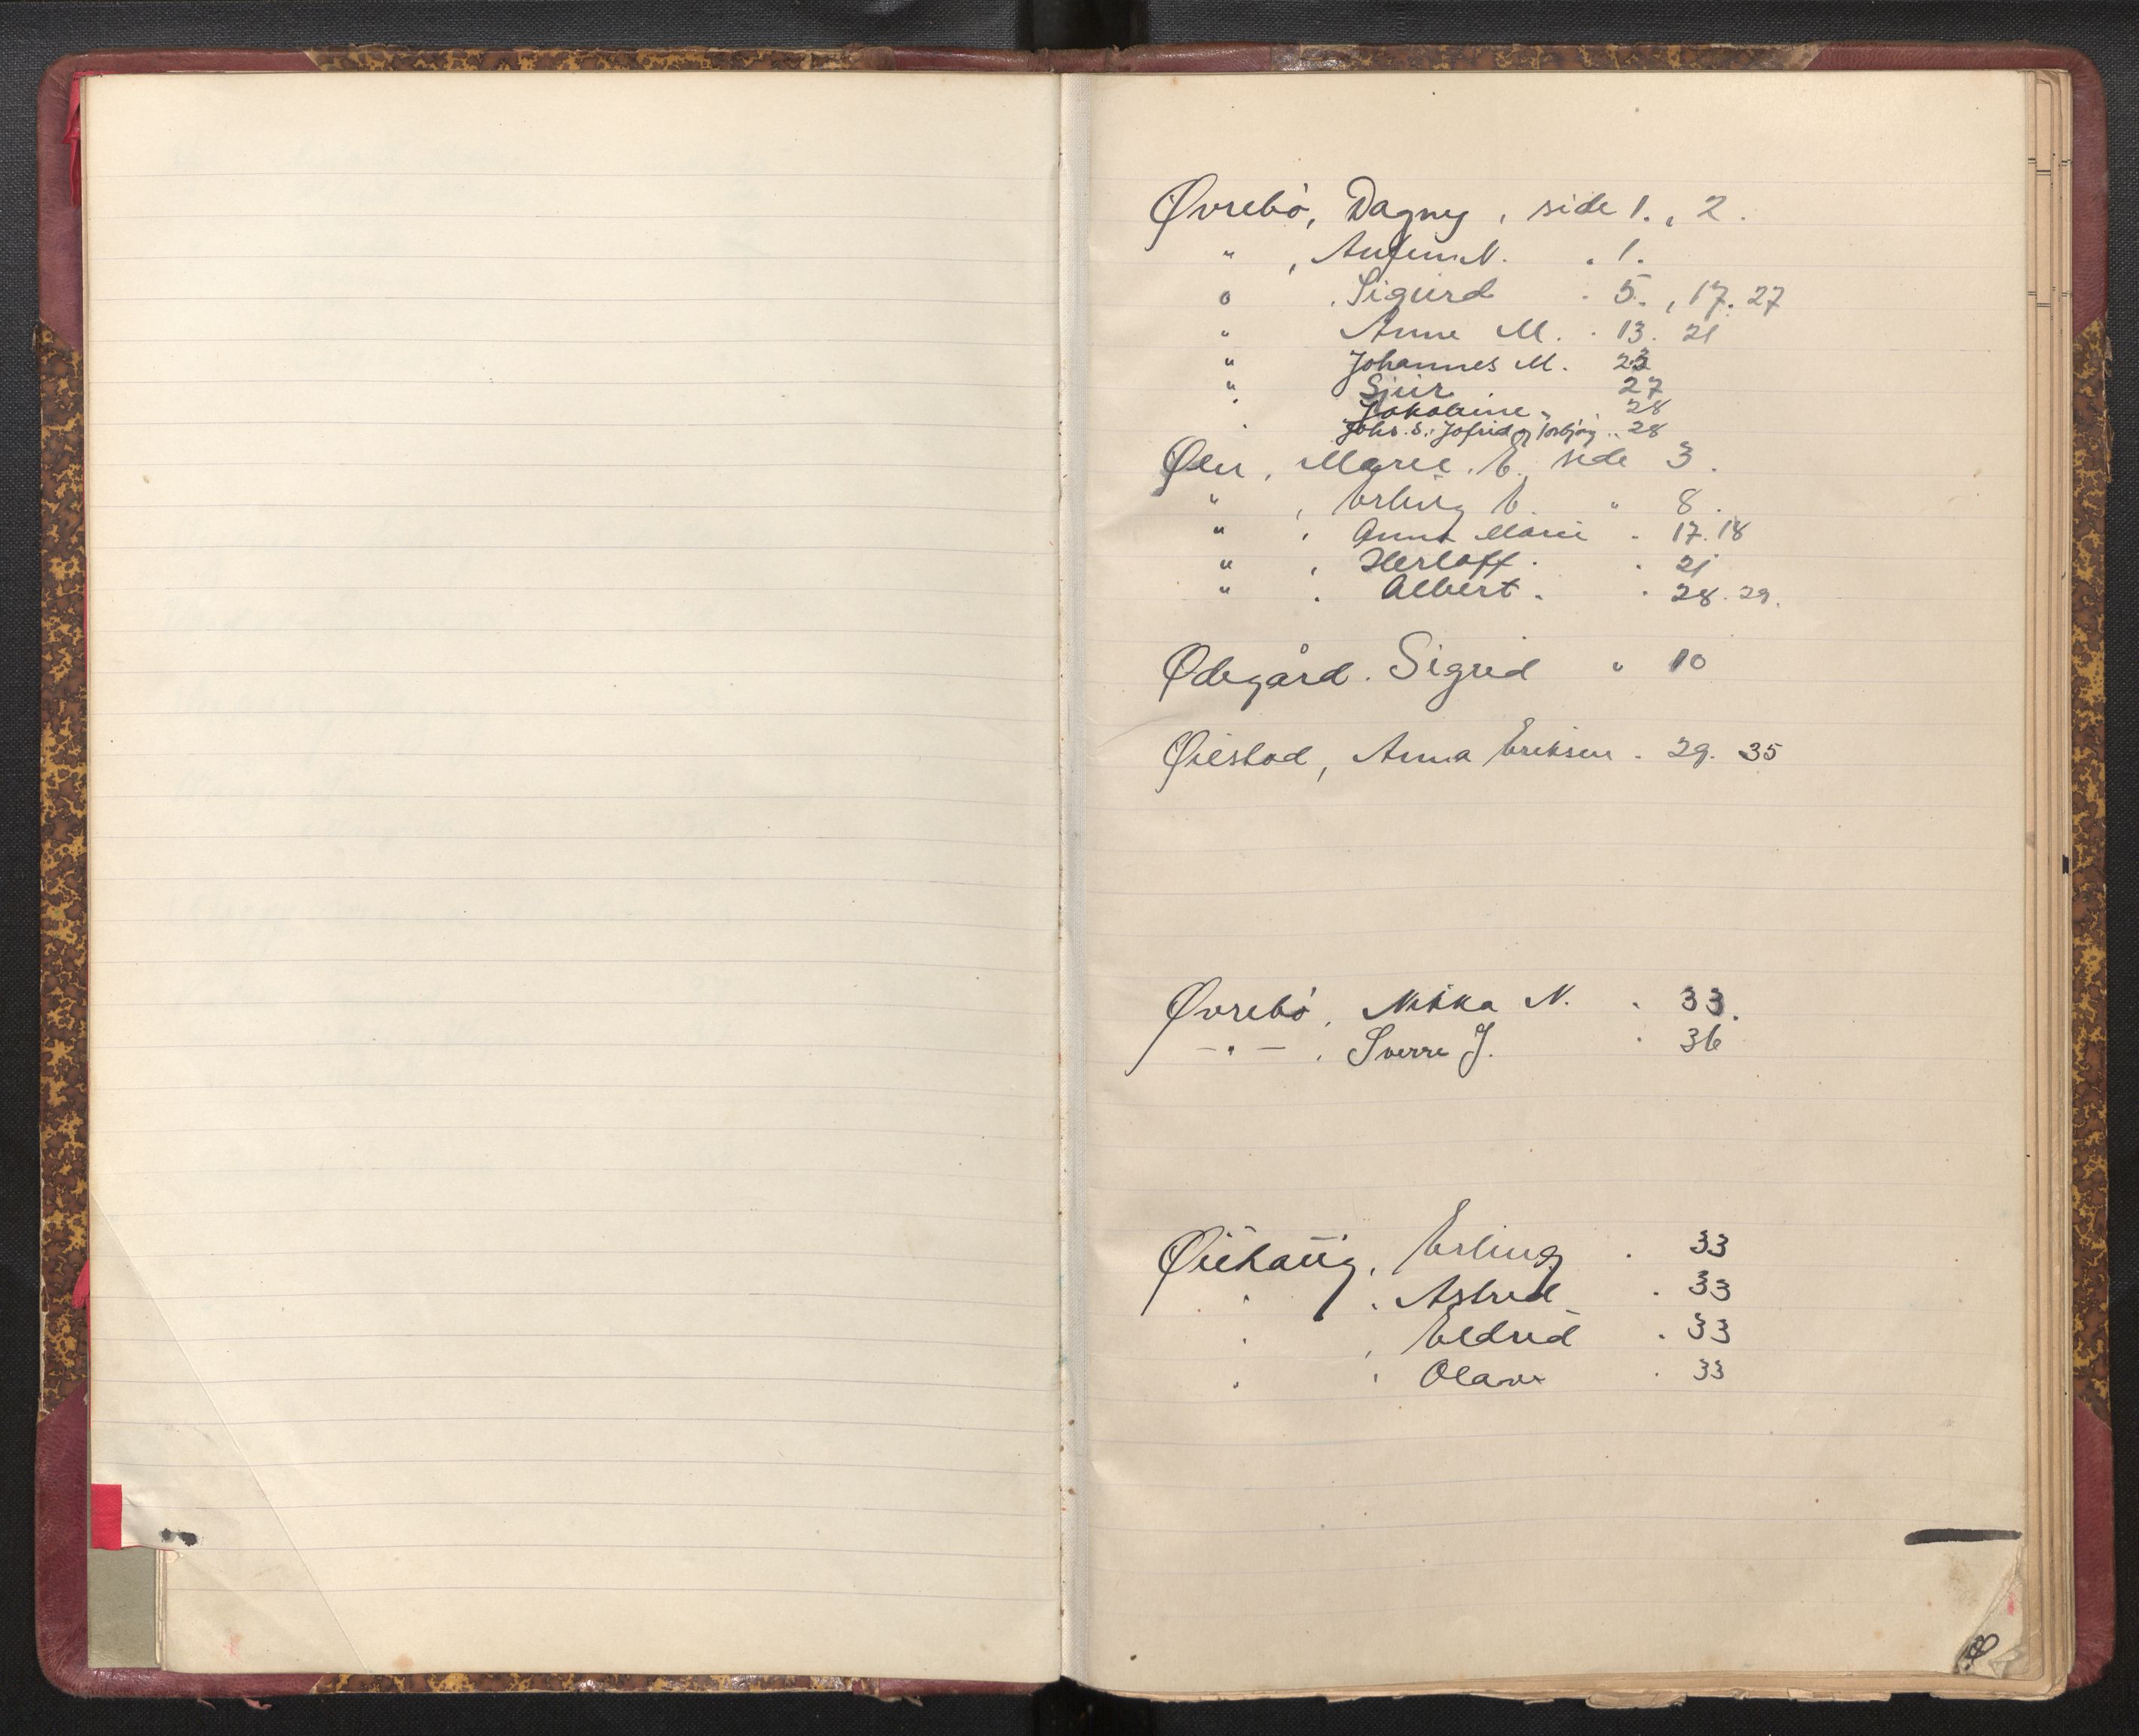 Øvrebö, Dagny, side 1., 2.
" , Anfinn N. . 1.
" . Sigurd . 5., 17. 27
" Anne M. . 13. 21
" Johannes M. 23
" Sjur 27
" Jakobine " 28
. Johs. S.: Jofrid og Torbjörg .. 28
Øen, Marie E. side 3.
" , Erling E. " 8.
" , Anna Marie . 17. 18
" , Herloff . . 21
" . Albert . . 28. 29.
Ødegård. Sigrid " 10
Øiestad, Anna Eriksen . 29. 35
Øvrebö, Mikka N. . 33.
— " — . Sverre J. . 36
Øiehaug, Erling . 33
. . Astrid . 33
. , Eldrid . 33
. , Olav . 33
Ø